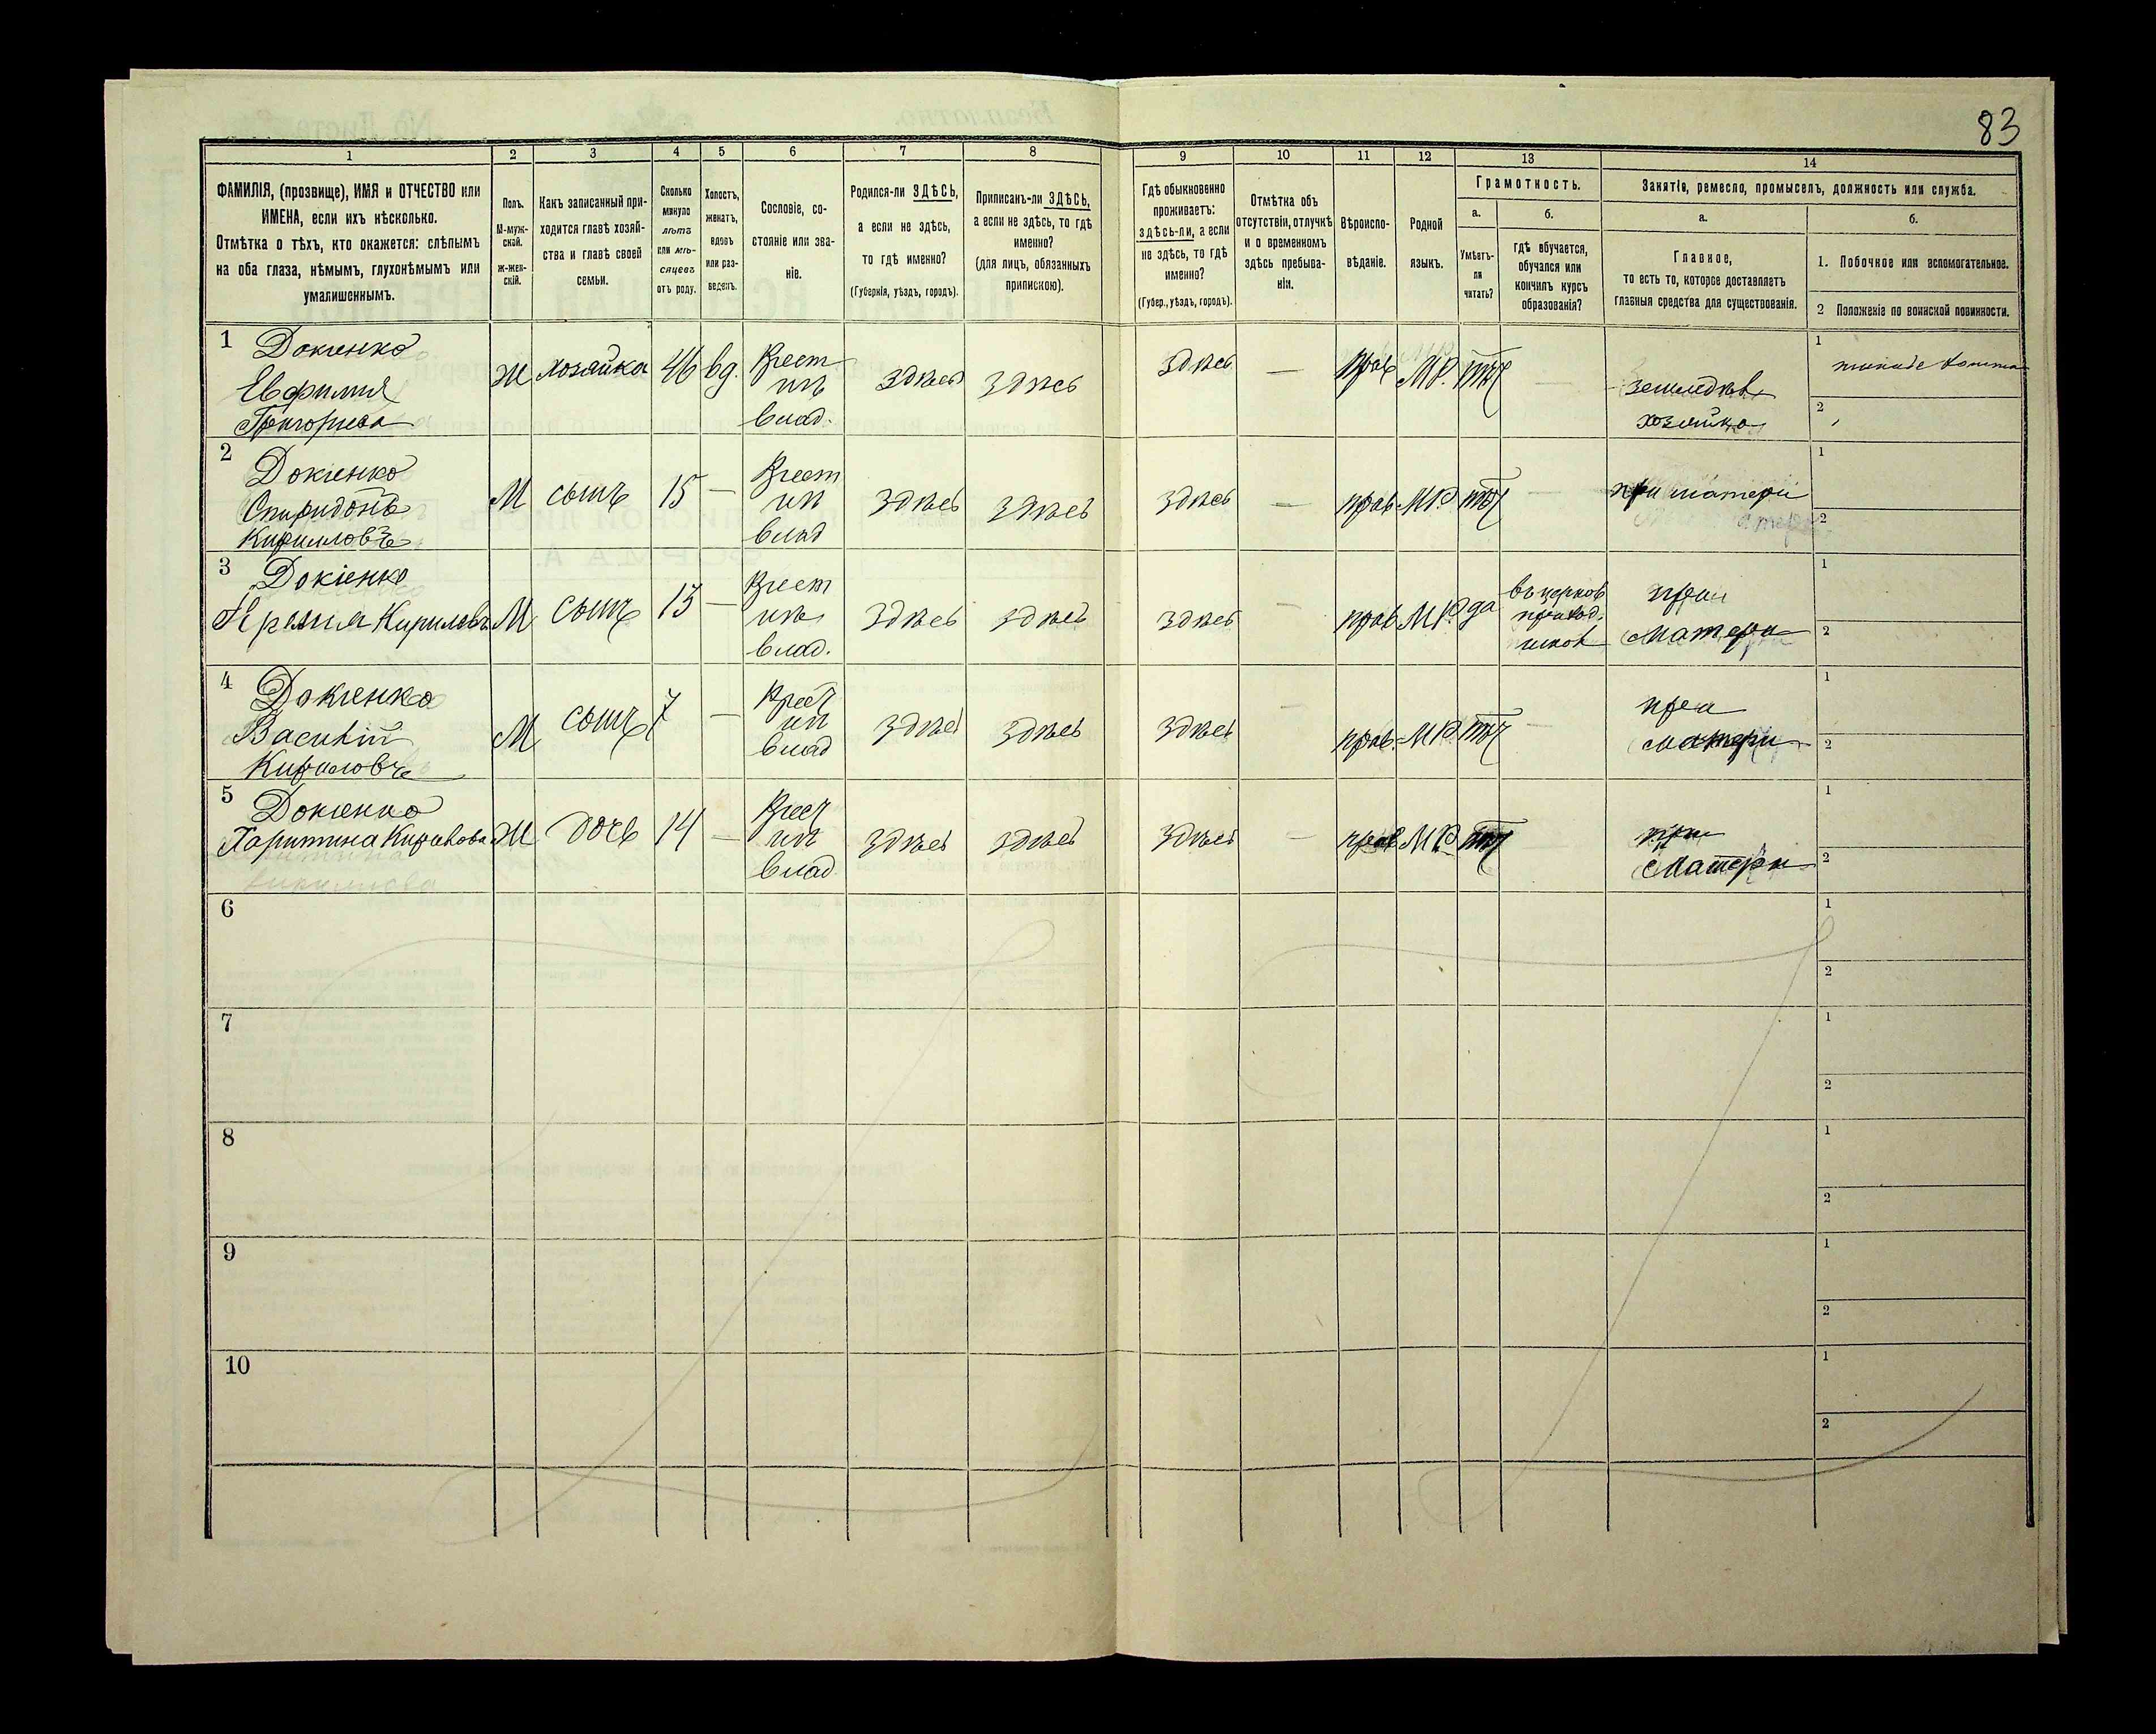 83
1 2 3 4 5 6 7 8 9 10 11 12 13 14
ФАМИЛІЯ, (прозвище), ИМЯ и ОТЧЕСТВО или
ИМЕНА, если ихъ нѣсколько.
Отмѣтка о тѣхъ, кто окажется: слѣпымъ
на оба глаза, нѣмымъ, глухонѣмымъ или
умалишеннымъ.
Полъ.
М-муж-
ской.
Ж-жен-
скій.
Какъ записанный при-
ходится главѣ хозяй-
ства и главѣ своей
семьи.
Сколько
минуло
лѣтъ
или мѣ-
сяцевъ
отъ роду.
Холостъ,
женатъ,
вдовъ
или раз-
веденъ.
Сословіе, со-
стояніе или зва-
ніе.
Родился-ли ЗДѢСЬ,
а если не здѣсь,
то гдѣ именно?
(Губернія, уѣздъ, городъ).
Приписанъ-ли ЗДѢСЬ,
а если не здѣсь, то гдѣ
именно?
(для лицъ, обязанныхъ
припискою).
Гдѣ обыкновенно
проживаетъ:
здѣсь-ли, а если
не здѣсь, то гдѣ
именно?
(Губер., уѣздъ, городъ).
Отмѣтка объ
отсутствіи, отлучкѣ
и о временномъ
здѣсь пребыва-
ніи.
Вѣроиспо-
вѣданіе.
Родной
языкъ.
Грамотность.
а.
Умѣетъ-
ли
читать?
б.
гдѣ обучается,
обучался или
кончилъ курсъ
образованія?
Занятіе, ремесло, промыселъ, должность или служба.
а.
Главное,
то есть то, которое доставляетъ
главныя средства для существованія.
б.
1. Побочное или вспомогательное.
2 Положеніе по воинской повинности.
1 Докіенко
Евфимия
Григорьева
Ж хозяйка 46 вд.
Крест
изъ
влад.
здѣсь здѣсь здѣсь — прав М.Р. нѣт —
земледѣл
хозяйка
1
2
2 Докіенко
Спиридонъ
Кирилловъ
М сынъ 15 —
Крест
из
влад
здѣсь здѣсь здѣсь — прав М.Р. нѣт —
при матери
1
2
3 Докіенко
Кирилловъ
М сынъ 13 —
Крест
изъ
влад.
здѣсь здѣсь здѣсь — прав М.Р. да
въ церков
приход.
школ
при
матери
1
2
4 Докіенко
Василій
Кириловъ
М сынъ 7 —
Крест
из
влад
здѣсь здѣсь здѣсь — прав. М.Р. нѣт —
при
матери
1
2
5 Докіенко
Харитина Кирилова
Ж дочь 14 —
Крест
из
влад
здѣсь здѣсь здѣсь — прав М.Р. нѣт —
при
матери
1
2
6
1
2
7
1
2
8
1
2
9
1
2
10
1
2